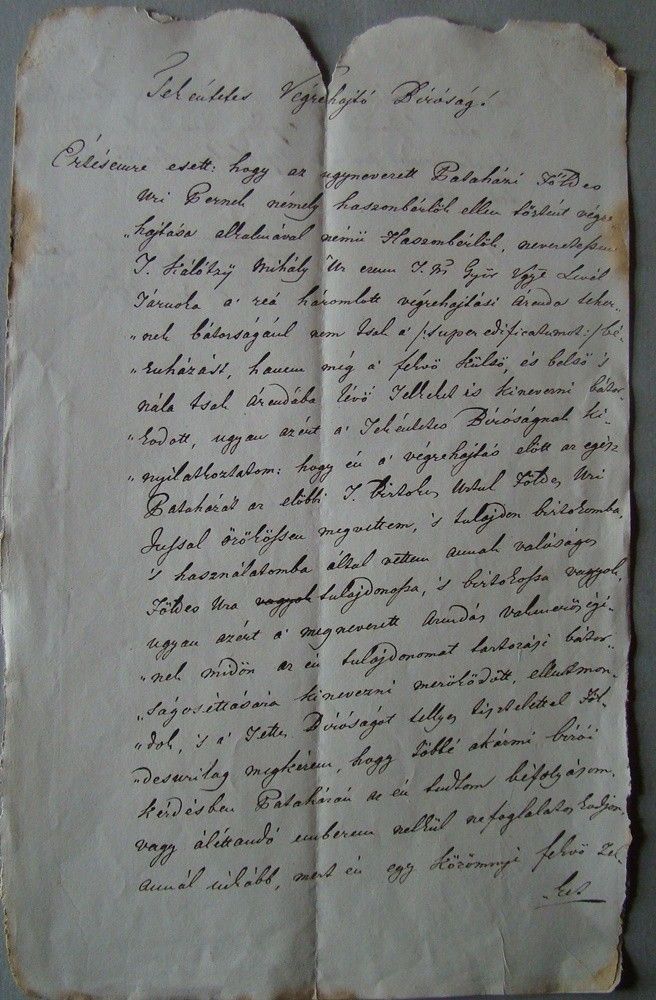 Tekéntetes Végrehajtó Biróság!
Értésemre esett: hogy az ugynevezett Pataházi Földes
Uri Pernek némely haszonbérlők ellen történt végre
„hajtása alkalmával némű Haszonbérlők, nevezetessen
T. Kálótzÿ Mihály Ur ezen T. Győr Levél
Tárnoka a' reá háromlott végrehajtási Árenda teher„
„nek bátorságául nem tsak a' /:super edificatumot:/ bé„
„ruházást, hanem még a' fekvő külső, és belső 's
nála tsak Árendába lévő Telkeket is kinevezni bátor„
„kodott, ugyan azért a' Tekéntetes Biróságnak ki„
„nyilatkoztatom: hogy én a' végrehajtás előtt az egész
Patahazát az előbbi T. birtokos Földes Uri
Jussal örökössen megvettem, 's tulajdon birtokomba,
's használatomba által vettem annak valóságos
Földes Ura vagyok tulajdonossa, 's birtokossa vagyok,
ugyan azért a' megnevezett Árendás vakmerőségi„
„nek midőn az én tulajdonomat tartozási bátor„
„ságosittására kinevezni merőködött, ellentmon„
„dok, 's a' Tettes Biróságot tellyes tisztelettel Föl„
„desurilag megkérem, hogy többé akármi birói
kérdésben Patahazán az én tudtom béfolyásom,
vagy álétandó emberem nélkül nefoglalatoskodjon,
annál inkább, mert én egy fekvő Tel„
„ket